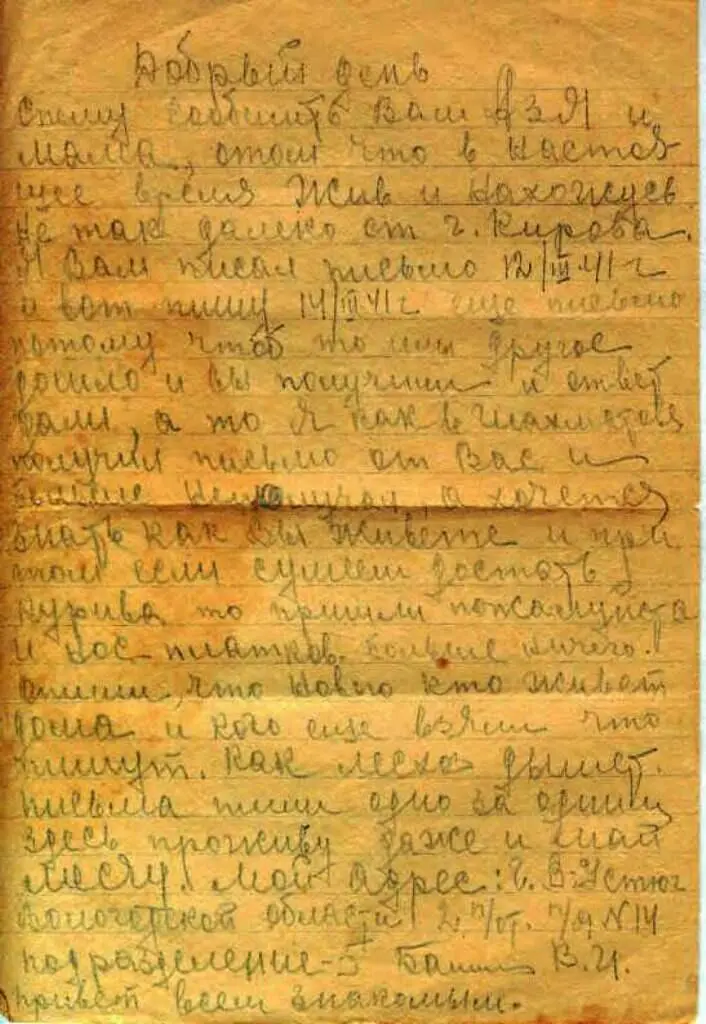 Добрый день
Спешу сообщить Вам Азя и
мама, отом что в настоя-
щее время Жив и нахожусь
не так далеко от г. Кирова.
Я Вам писал письмо 12/III 41 г
а вот пишу 14/III 41 г еще письмо
потому чтоб то или другое
дошло и вы получили и ответ
дали, а то я как в
получил письмо от Вас и
больше неполучал, а хочется
знать как Вы живете и при
том если сумеш достать
курива то пришли пожалуйста
и нос-платков. Больше ничего.
опиши, что нового кто живет
дома и кого еще взяли что
пишут. Как лесхоз дышет.
письма пиши одно за одним
здесь проживу даже и май
месяц. Мой адрес: г. В-Устюг
Вологодской области 2 п/от. п/я N 14
подразделение-5 В.И.
привет всем знакомым.